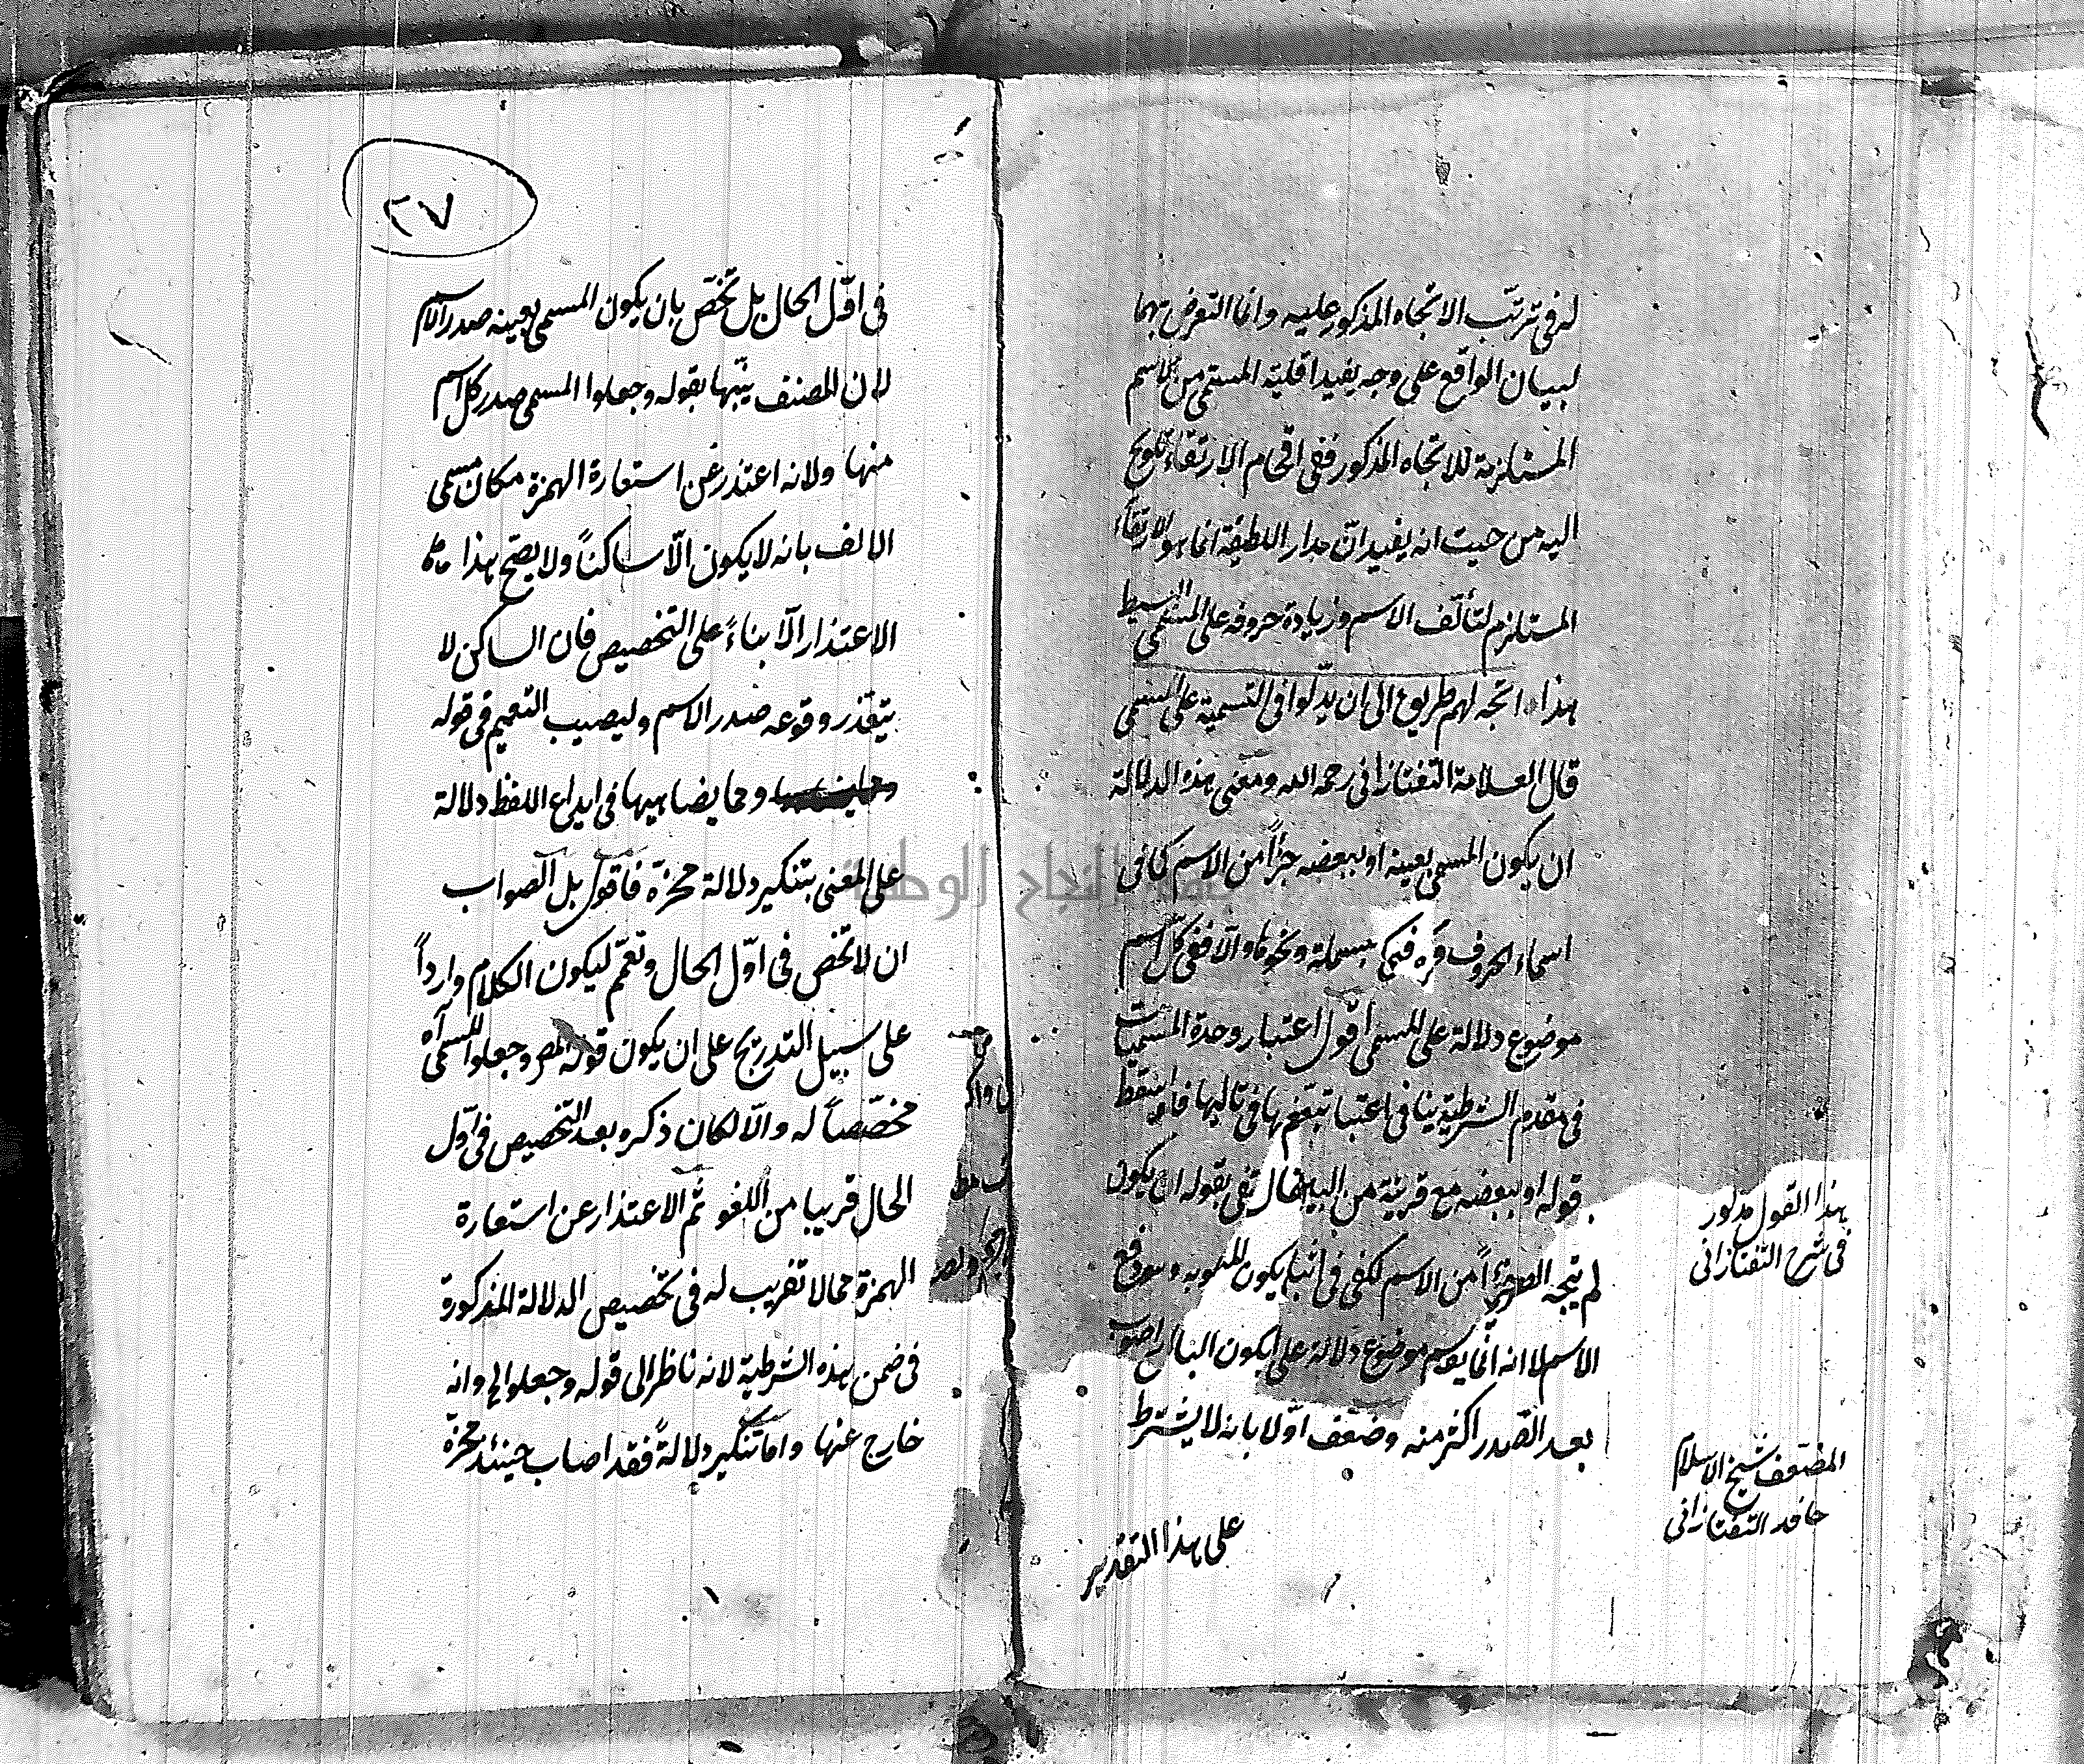 له في ترتب الاتجاه المذكور عليه وانما التعرض بهما
لبيان الواقع على وجه يفيد اقلية المسمى من الاسم
المستلزمة للاتجاه المذكور ففي اقحام الارتقاء تلويح
اليه من حيث انه يفيد ان مدار اللطيفة انما هو الارتقاء
المستلزم لتألف الاسم وزيادة حروفه على المسمى البسيط
هذا اتجه لهم طريق الى ان يدلوا في التسمية على المسمى
قال العلامة التفتازاني رحمه الله ومعنى هذه الدلالة
ان يكون المسمى بعينه او ببعضه جزأ من الاسم كما في
اسماء الحروف والا ففي كل اسم
موضوع دلالة على المسمى اقول اعتبار وحدة المسميات
في مقدم الشرطية ينافي في تاليها
قوله او ببعضه مع قرينة من بقوله ان يكون
لم يتجه من الاسم
الاسم لا انه انما موضوع دلالة على
بعد الصدر اكثر منه وضعف اولا بانه لا يشترط
على هذا التقدير
هذا القول مذكور
في شرح التفتازاني
المضعف شيخ الاسلام
حافد التفتازاني
٢٧
في اول الحال بل تخص بان يكون المسمى بعينه صدر الاسم
لان المصنف ينبها بقوله وجعلوا المسمى صدر كل اسم
منها ولانه اعتذر عن استعارة الهمزة مكان مسمى
الالف بانه لا يكون الا ساكنا ولا يصح هذا
الاعتذار الا بناء على التخصيص فان الساكن لا
يتعذر وقوعه صدر الاسم وليصيب التعميم في قوله
ومما يضاهيها في ايداع اللفظ دلالة
على المعنى بتنكير دلالة محزه فاقول بل الصواب
ان لا تخص في اول الحال وتعمم ليكون الكلام واردا
على سبيل التدريج على ان يكون قول المص وجعلوا المسمى آه
مخصصا له والا لكان ذكره بعد التخصيص في اول
الحال قريبا من اللغو ثم الاعتذار عن استعارة
الهمزة مما لا تقريب له في تخصيص الدلالة المذكورة
في ضمن هذه الشرطية لانه ناظر الى قوله وجعلوا الخ وانه
خارج عنها واما تنكير دلالة فقد اصاب حينئذ محزه